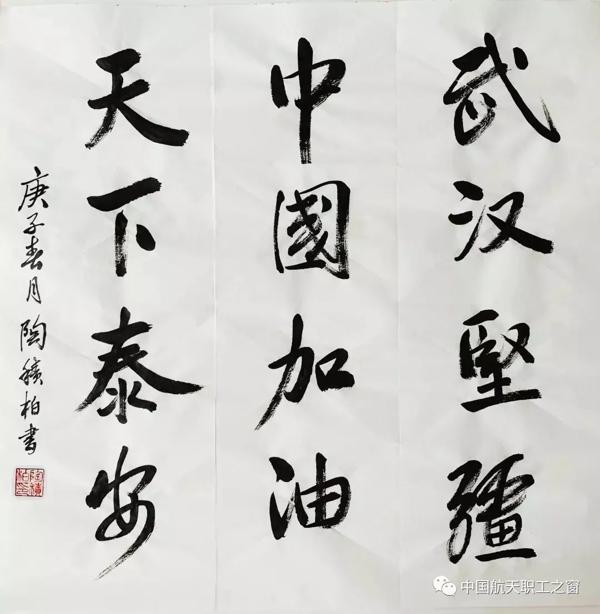 武汉堅彊
中國加油
天下泰安
庚子春月陶積柏書
中国航天职工之窗